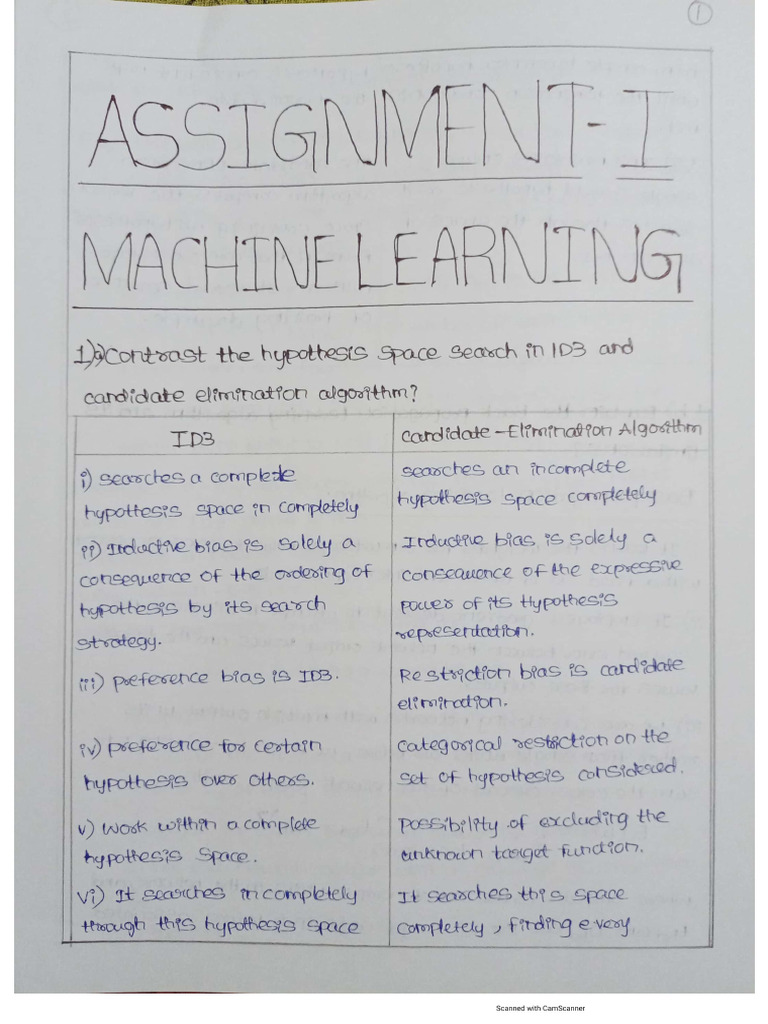 1
ASSIGNMENT-I
MACHINE LEARNING
1)a) Contrast the hypothesis space search in ID3 and
candidate elimination algorithm?
ID3
Candidate-Elimination Algorithm
i) searches a complete
hypothesis space in completely
searches an incomplete
hypothesis space completely
ii) Inductive bias is solely a
consequence of the ordering of
hypothesis by its search
strategy.
Inductive bias is solely a
consequence of the expressive
power of its Hypothesis
representation.
iii) preference bias is ID3.
Restriction bias is candidate
elimination.
iv) preference for certain
hypothesis over others.
categorical restriction on the
set of hypothesis considered.
v) Work within a complete
hypothesis space.
possibility of excluding the
unknown target function.
vi) It searches incompletely
through this hypothesis space
It searches this space
completely, finding every
Scanned with CamScanner